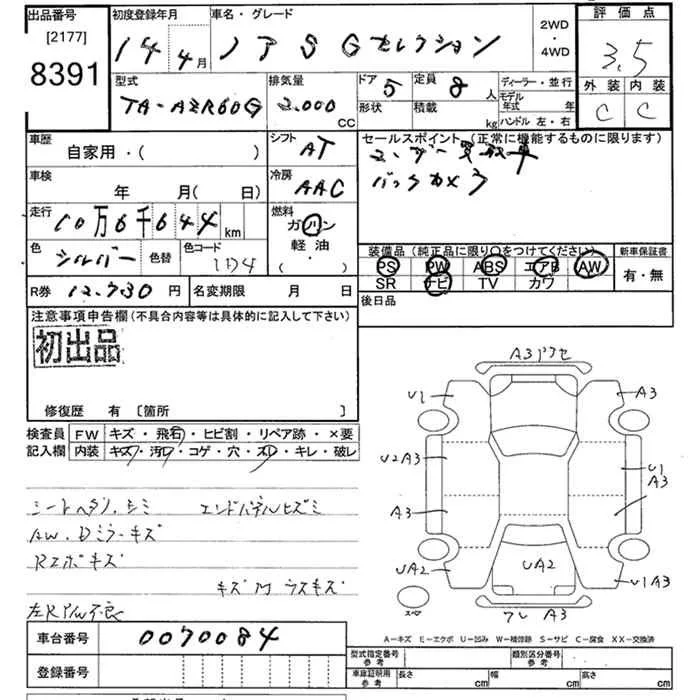 出品番号
[2177]
8391
初度登録年月
14年4月
車名・グレード
ノア S Gセレクション
2WD
・
4WD
評価点
3.5
外装 内装
C C
型式
TA-AZR60G
排気量
2.000
CC
ドア 5
形状
定員 8人
積載 kg
ディーラー・並行
モデル年式 年
ハンドル 左・右
車歴
自家用・( )
シフト
AT
セールスポイント (正常に機能するものに限ります)
ユーザー買取車
バックカメラ
車検
年 月( 日)
冷房
AAC
走行
10万6千644km
燃料
ガソリン
軽油
・( )
色
シルバー
色替
色コード
1D4
装備品 (純正品に限り○をつけてください)
PS PW ABS エアB AW
SR ナビ TV カワ
新車保証書
有・無
R券 12.730円
名変期限 月 日
後日品
注意事項申告欄(不具合内容等は具体的に記入して下さい)
初出品
修復歴 有 [箇所 ]
検査員 FW キズ・飛石・ヒビ割・リペア跡・×要
記入欄 内装 キズ・汚レ・コゲ・穴・スレ・キレ・破レ
シートヘタリ、シミ エンドパネルヒズミ
AW、Dミラーキズ
Rエボキズ
キズ凹 ウスキズ
左R 不良
A3
U1 A3
U2 A3
U1
A3
A3
UA2 UA2 U1 A3
スペア
A3
A-キズ E-エクボ U-凹み W-補修跡 S-サビ C-腐食 XX-交換済
車台番号
0070084
登録番号
型式指定番号
参考
類別区分番号
参考
車庫証明用
参考
長さ cm
幅 cm
高さ cm